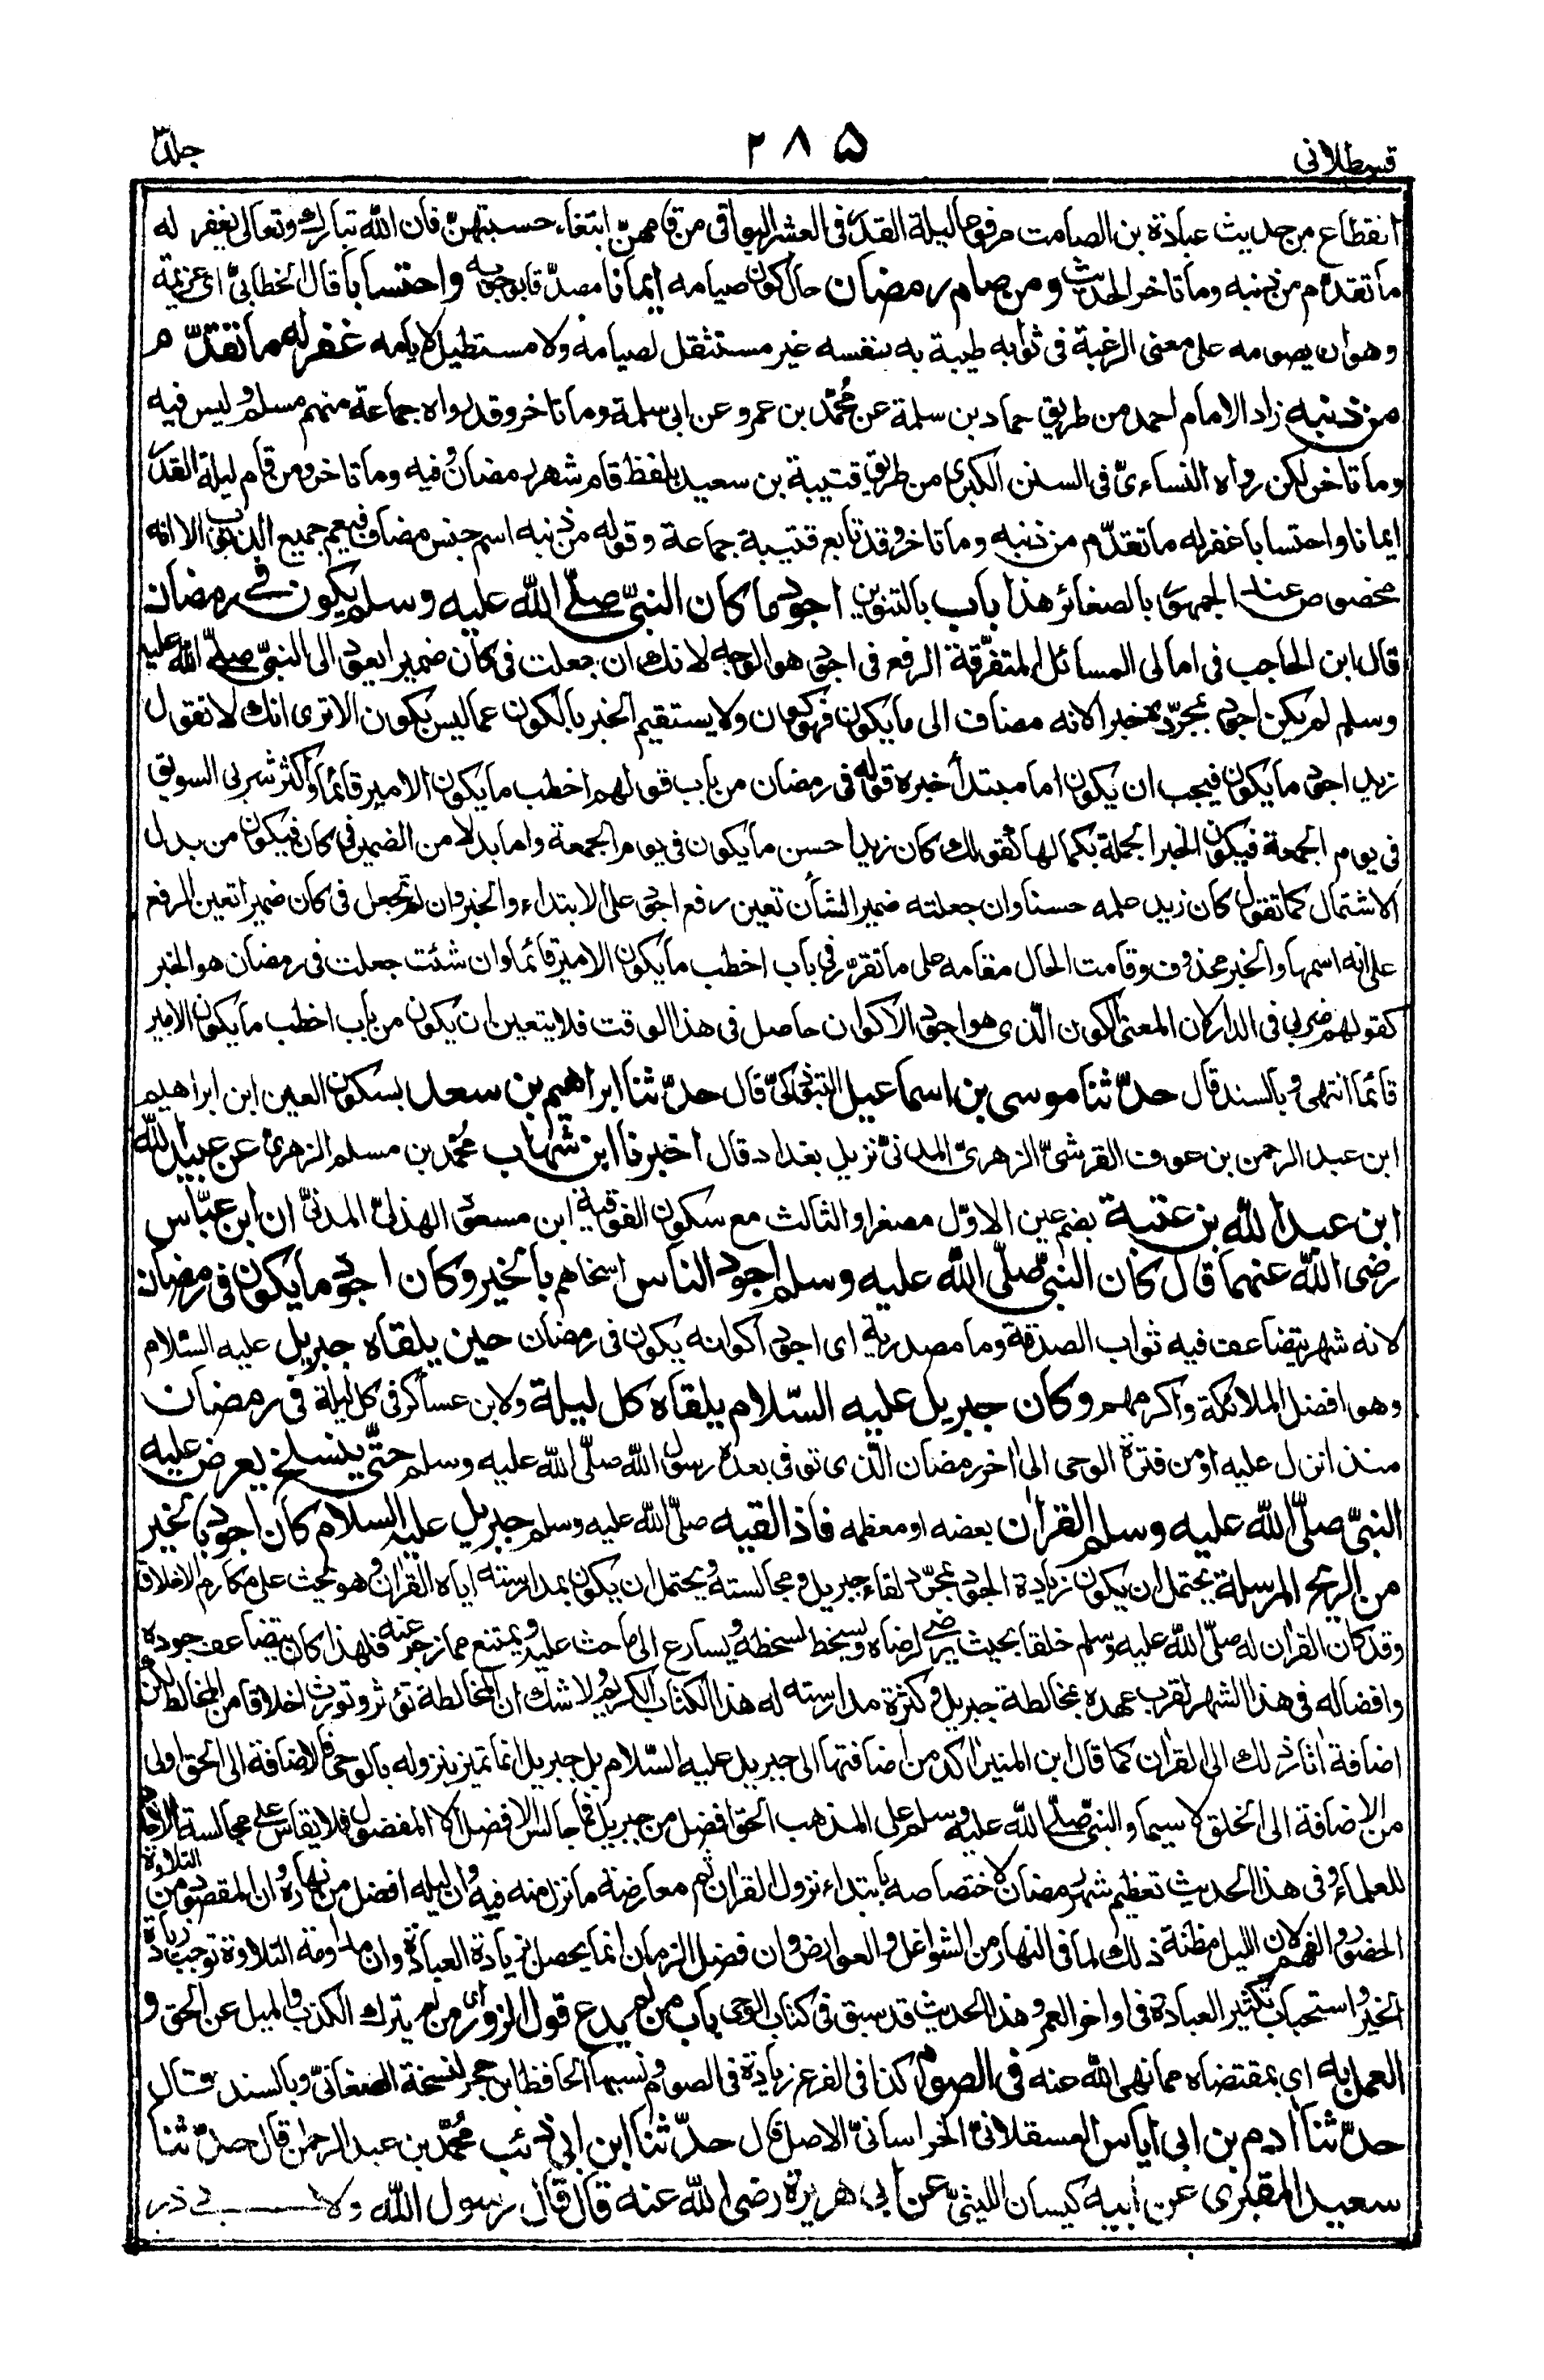 قسطلانی ۲۸۵ جلد ۳
انقطاع من حديث عبادة بن الصامت مرفوعا ليلة القدر فى العشر البواقى من قامهنّ ابتغاء حسبتهنّ فان الله تبارك وتعالى يغفر له
ما تقدّم من ذنبه وما تاخر الحديث ومن صام رمضان حال كون صيامه ايمانا مصدّقا بوجوبه واحتسابا قال الخطابىّ اى عزيمة
وهو ان يصومه على معنى الرغبة فى ثوابه طيبة به بنفسه غير مستثقل لصيامه ولا مستطيل لايامه غفر له ما تقدّم
من ذنبه زاد الامام احمد من طريق حماد بن سلمة عن محُمّد بن عمرو عن ابى سلمة وما تاخر وقد رواه جماعة منهم مسلم وليس فيه
وما تاخر لكن رواه النساءىّ فى السنن الكبرى من طريق قتيبة بن سعيد بلفظ قام شهر رمضان وفيه وما تاخر ومن قام ليلة القدر
ايمانا واحتسابا غفر له ما تقدّم من ذنبه وما تاخر وقد تابع قتيبة جماعة وقوله من ذنبه اسم جنس مضاف فيعم جميع الذنوب الا انه
مخصوص عند الجمهور بالصغائر هذا باب بالتنوين اجود ما كان النبىّ صلّى الله عليه وسلم يكون فى رمضان
قال ابن الحاجب فى امالى المسائل المتفرّقة الرفع فى اجود هو الوجه لانك ان جعلت فى كان ضميرا يعود الى النبىّ صلّى الله عليه
وسلم لم يكن اجود بمجرّده خبرا لانه مضاف الى ما يكون فهو كون ولا يستقيم الخبر بالكون عما ليس بكون الا ترى انك لا تقول
زيد اجود ما يكون فيجب ان يكون اما مبتدأ خبره قوله فى رمضان من باب قولهم اخطب ما يكون الامير قائما واكثر شربى السويق
فى يوم الجمعة فيكون الخبر الجملة بكمالها كقولك كان زيد احسن ما يكون فى يوم الجمعة واما بدلا من الضمير فى كان فيكون من بدل
الاشتمال كما تقول كان زيد علمه حسنا وان جعلته ضمير الشأن تعين رفع اجود على الابتداء والخبر وان لم تجعل فى كان ضميرا تعين الرفع
على انه اسمها والخبر محذوف وقامت الحال مقامه على ما تقرّر فى باب اخطب ما يكون الامير قائما وان شئت جعلت فى رمضان هو الخبر
كقولهم ضربى فى الدار كان المعنى الكون الّذى هو اجود الاكوان حاصل فى هذا الوقت فلا يتعين ان يكون من باب اخطب ما يكون الامير
قائما انتهى وبالسند قال حدّثنا موسى بن اسماعيل التبوذكىّ قال حدّثنا ابراهيم بن سعد بسكون العين ابن ابراهيم
ابن عبد الرحمن بن عوف القرشىّ الزهرىّ المدنىّ نزيل بغداد قال اخبرنا ابن شهاب محُمّد بن مسلم الزهرىّ عن عبيد الله
ابن عبد الله بن عتبة بضم عين الاوّل مصغرا والثالث مع سكون الفوقية ابن مسعود الهذلىّ المدنىّ ان ابن عبّاس
رضى الله عنهما قال كان النبىّ صلّى الله عليه وسلم اجود الناس اسخاهم بالخير وكان اجود ما يكون فى رمضان
لانه شهر يتضاعف فيه ثواب الصدقة وما مصدرية اى اجود اكوانه يكون فى رمضان حين يلقاه جبريل عليه السّلام
وهو افضل الملائكة واكرمهم وكان جبريل عليه السّلام يلقاه كل ليلة ولابن عساكر فى كل ليلة فى رمضان
منذ انزل عليه او من فترة الوحى الى اخر رمضان الّذى توفى بعده رسول الله صلّى الله عليه وسلم حتّى ينسلخ يعرض عليه
النبىّ صلّى الله عليه وسلم القران بعضه او معظمه فاذا لقيه صلّى الله عليه وسلم جبريل عليه السلام كان اجود بالخير
من الريح المرسلة يحتمل ان يكون زيادة الجود بمجرّد لقاء جبريل ومجالسته ويحتمل ان يكون بمدارسته اياه القران وهو يحث على مكارم الاخلاق
وقد كان القران له صلّى الله عليه وسلم خلقا بحيث يرضى لرضاه ويسخط لسخطه ويسارع الى ما حث عليه ويمتنع مما زجر عنه فلهذا كان يتضاعف جوده
وافضاله فى هذا الشهر لقرب عهده بمخالطة جبريل وكثرة مدارسته له هذا الكتاب الكريم ولا شك ان المخالطة تؤثر وتورث اخلاقا من المخالط لكن
اضافة اثار ذلك الى القران كما قال ابن المنير اكد من اضافتها الى جبريل عليه السّلام بل جبريل انما تميز بنزوله بالوحى فالاضافة الى الحق اولى
من الاضافة الى الخلق لا سيما والنبىّ صلّى الله عليه وسلم على المذهب الحق افضل من جبريل فما جالس الافضل الا المفضول فلا يقاس على مجالسة الاحاد
للعلماء وفى هذا الحديث تعظيم شهر رمضان لاختصاصه بابتداء نزول القران ثم معارضة ما نزل منه فيه وان ليله افضل من نهاره وان المقصود من التلاوة
الحضور والفهم لان الليل مظنة ذلك لما فى النهار من الشواغل والعوارض وان فضل الزمان انما يحصل بزيادة العبادة وان مداومة التلاوة توجب زيادة
الخير واستحباب تكثير العبادة فى اواخر العمر وهذا الحديث قد سبق فى كتاب الوحى باب من لم يدع قول الزور اى من لم يترك الكذب والميل عن الحق و
العمل به اى بمقتضاه مما نهى الله عنه فى الصوم كذا فى الفرع زيادة فى الصوم ونسبها الحافظ ابن حجر لنسخة الصغانىّ وبالسند قال
حدّثنا ادم بن ابى اياس العسقلانىّ الخراسانىّ الاصل قال حدّثنا ابن ابى ذئب محُمّد بن عبد الرحمن قال حدّثنا
سعيد المقبرى عن ابيه كيسان الليثىّ عن ابى هريرة رضى الله عنه قال قال رسول الله ولابى ذر